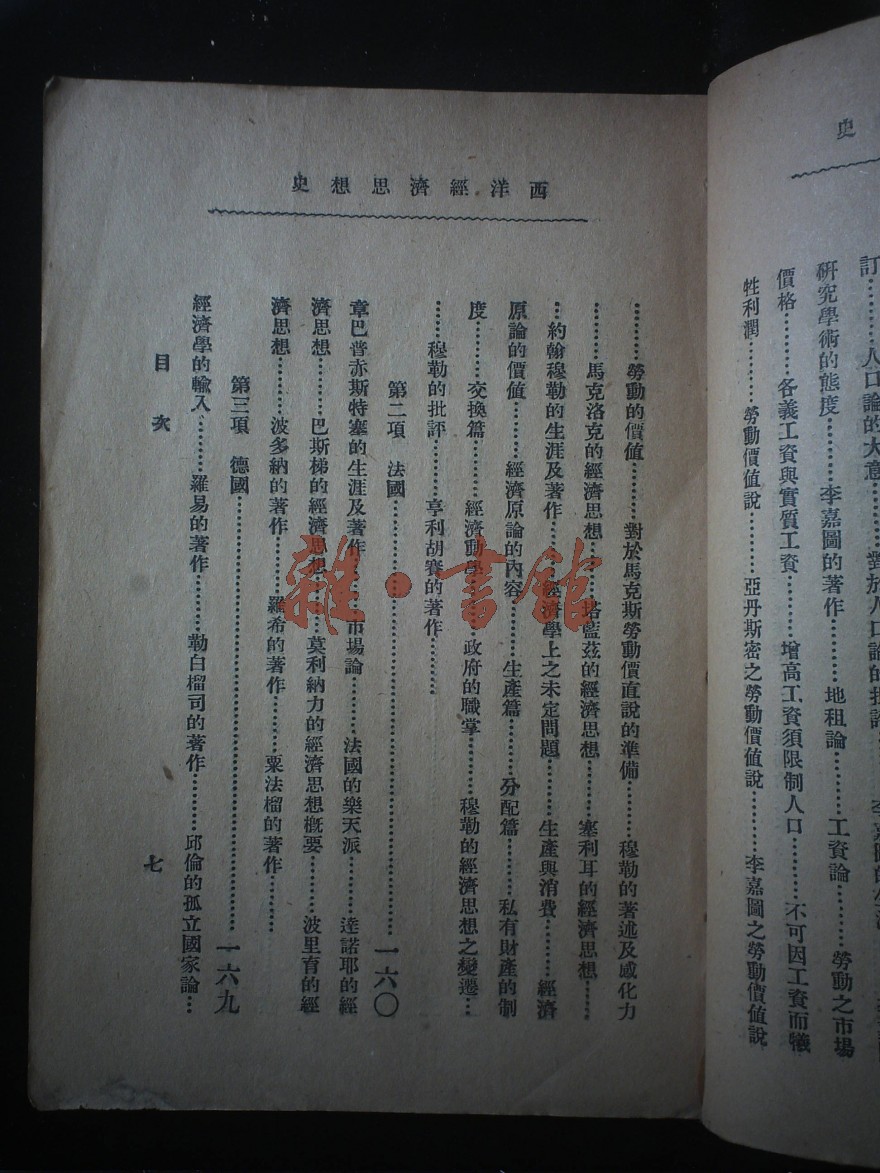 史
訂………人口論的大意………對於人口論的批評
研究學術的態度………李嘉圖的著作………地租論………工資論………勞動之市場
價格………各義工資與實質工資………增高工資須限制人口………不可因工資而犧
牲利潤………勞動價值說………亞丹斯密之勞動價值說………李嘉圖之勞動價值說
西洋經濟思想史
………勞動的價值………對於馬克斯勞動價直說的準備………穆勒的著述及感化力
………馬克洛克的經濟思想………塔藍茲的經濟思想………塞利耳的經濟思想……
…約翰穆勒的生涯及著作………經濟學上之未定問題………生產與消費………經濟
原論的價值………經濟原論的內容………生產篇………分配篇………私有財產的制
度………交換篇………經濟動學………政府的職掌………穆勒的經濟思想之變遷…
……穆勒的批評………亨利胡賽的著作………
第二項 法國………一六〇
章巴普亦斯特塞的生涯及著作………市場論………法國的樂天派………達諾耶的經
濟思想………巴斯梯的經濟思想………莫利納力的經濟思想概要………波里育的經
濟思想………波多納的著作………羅希的著作………栗法榴的著作………
第三項 德國………一六九
經濟學的輸入………羅易的著作………勒白榴司的著作………邱倫的孤立國家論…
目次
七
雜·書館